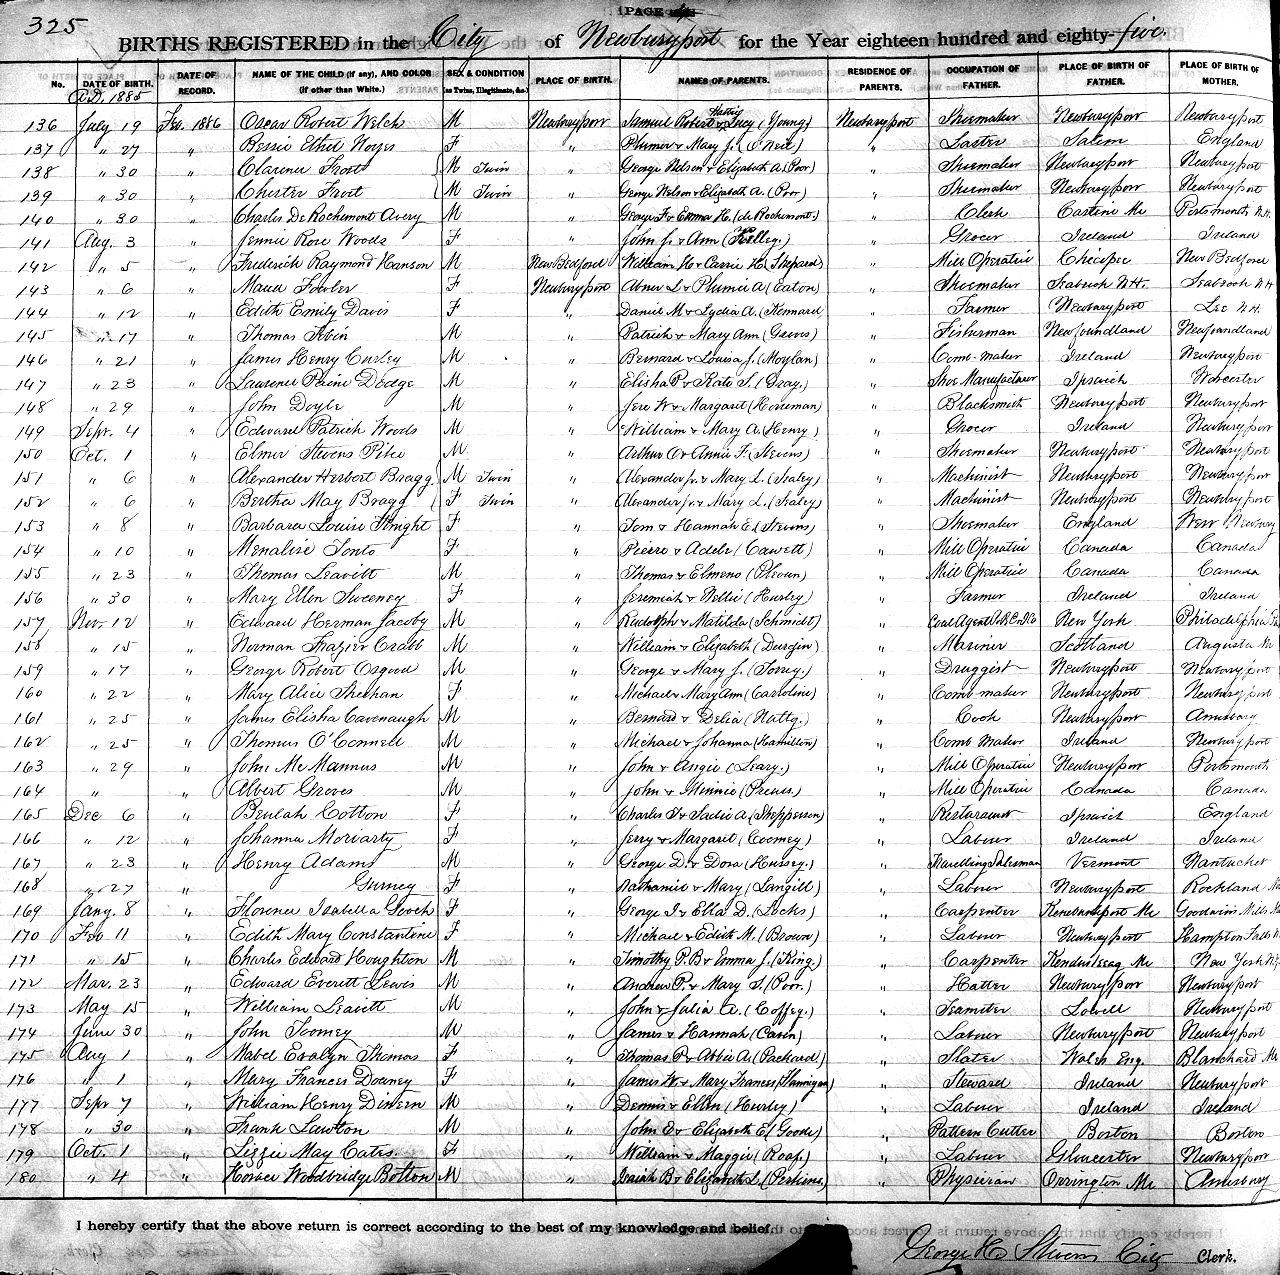 325
PAGE
BIRTHS REGISTERED in the City of Newburyport for the Year eighteen hundred and eighty-five.
No. DATE OF BIRTH. DATE OF RECORD. NAME OF THE CHILD (if any), AND COLOR (if other than White.) SEX & CONDITION (as Twins, Illegitimate, &c.) PLACE OF BIRTH. NAMES OF PARENTS. RESIDENCE OF PARENTS. OCCUPATION OF FATHER. PLACE OF BIRTH OF FATHER. PLACE OF BIRTH OF MOTHER.
A.D. 1885
136 July 19 Feb. 1886 Oscar Robert Welch M Newburyport Samuel Robert & Hattie Lucy (Young) Newburyport Shoemaker Newburyport Newburyport
137 " 27 " Bessie Ethel Noyes F " Plumer & Mary J. (O'Neil) " Laster Salem England
138 " 30 " Clarence Frost M Twin " George Nelson & Elizabeth A. (Poor) " Shoemaker Newburyport Newburyport
139 " 30 " Chester Frost M Twin " George Nelson & Elizabeth A. (Poor) " Shoemaker Newburyport Newburyport
140 " 30 " Charles De Rochemont Avery M " George F. & Emma H. (de Rochemont) " Clerk Castine Me Portsmouth N.H.
141 Aug. 3 " Jennie Rose Woods F " John J. & Ann (Kelley.) " Grocer Ireland Ireland
142 " 5 " Frederick Raymond Hanson M New Bedford William H & Carrie H. (Shepard) " Mill Operative Chicopee New Bedford
143 " 6 " Maud Fowler F Newburyport Abner L. & Plumie A (Eaton) " Shoemaker Seabrook N.H. Seabrook N.H
144 " 12 " Edith Emily Davis F " Daniel M. & Lydia A. (Kennard " Farmer Newburyport Lee N.H.
145 " 17 " Thomas M " Patrick & Mary Ann (Greves) " Fisherman Newfoundland Newfoundland
146 " 21 " James Henry Curley M " Bernard & Louisa J. (Moylan) " Comb-maker Ireland Newburyport
147 " 23 " Laurence Paine Dodge M " Elisha P. & Kate S. (Gray.) " Shoe Manufacturer Ipswich Worcester
148 " 29 " John Doyle M " Jere W & Margaret (Horseman) " Blacksmith Newburyport Newburyport
149 Sept. 4 " Edward Patrick Woods M " William & Mary A. (Henry) " Grocer Ireland Newburyport
150 Oct. 1 " Elmer Stevens Pike M " Arthur C. & Annie F. (Stevens) " Shoemaker Newburyport Newburyport
151 " 6 " Alexander Herbert Bragg M Twin " Alexander Jr. & Mary L. (Staley) " Machinist Newburyport Newburyport
152 " 6 " Bertha May Bragg F Twin " Alexander Jr. & Mary L. (Staley) " Machinist Newburyport Newburyport
153 " 8 " Barbara Louise Knight F " Tom & Hannah E. (Stevens) " Shoemaker England West Newbury
154 " 10 " Menalise F " Pierre & Adele (Cawett) " Mill Operative Canada Canada
155 " 23 " Thomas Leavitt M " Thomas & Elmeno " Mill Operative Canada Canada
156 " 30 " Mary Ellen Sweeney F " Jeremiah & Nellie (Hurley) " Farmer Ireland Ireland
157 Nov. 12 " Edward Herman Jacoby M " Rudolph & Matilda (Schmidt) " Coal Agent New York Philadelphia Pa
158 " 15 " Norman Frazier Crabb M " William & Elizabeth (Durgin) " Mariner Scotland Augusta Me
159 " 17 " George Robert Osgood M " George & Mary J. (Torrey.) " Druggist Newburyport Newburyport
160 " 22 " Mary Alice Sheehan F " Michael & Mary Ann (Carroline) " Comb maker Newburyport Newburyport
161 " 25 " James Elisha Cavenaugh M " Bernard & Delia (Natty.) " Cook Newburyport Amesbury
162 " 25 " Thomas O'Connell M " Michael & Johanna (Hamilton) " Comb Maker Ireland Newburyport
163 " 29 " John McMannus M " John & Angie (Leary.) " Mill Operative Newburyport Portsmouth
164 " " Albert Groves M " John & Minnie " Mill Operative Canada Canada
165 Dec 6 " Beulah Cotton F " Charles T. & Sadie A. (Shepperson) " Restaurant Ipswich England
166 " 12 " Johanna Moriarty F " Jerry & Margaret (Coomey) " Laborer Ireland Ireland
167 " 23 " Henry Adams M " George D. & Dora (Hussey.) " Travelling Salesman Vermont Nantucket
168 " 27 " Gurney F " Nathaniel & Mary (Langill) " Laborer Newburyport Rockland Me
169 Jany. 8 " Florence Isabella Gooch F " George I. & Ella D. (Locke) " Carpenter Kennebunkport Me Goodwins Mills Me
170 Feb 11 " Edith Mary Constantine F " Michael & Edith M. (Brown) " Laborer Newburyport Hampton Falls N.
171 " 15 " Charles Edward Houghton M " Timothy P. B & Emma J. (King.) " Carpenter Kenduskeag Me New York N.Y.
172 Mar. 23 " Edward Everett Lewis M " Andrew P. & Mary S. (Poor.) " Hatter Newburyport Newburyport
173 May 15 " William Leavitt M " John & Julia A. (Coffey.) " Teamster Lowell Newburyport
174 June 30 " John Toomey M " James & Hannah (Casin) " Laborer Newburyport Newburyport
175 Aug 1 " Mabel Evalyn Thomas F " Thomas P. & Abbie A. (Packard) " Slater Wales Eng. Blanchard Me
176 " 1 " Mary Frances Downey F " James W. & Mary Frances (Flannigan) " Steward Ireland Newburyport
177 Sept 7 " William Henry Dineen M " Dennis & Ellen (Hurley) " Laborer Ireland Ireland
178 " 30 " Frank Lawton M " John E. & Elizabeth E. (Goode) " Pattern Cutter Boston Boston
179 Oct. 1 " Lizzie May Cates. F " William & Maggie (Roaf.) " Laborer Gloucester Newburyport
180 " 4 " Horace Woodbridge Bolton M " Isaiah B. & Elizabeth L. (Perkins) " Physician Orrington Me Amesbury
I hereby certify that the above return is correct according to the best of my knowledge and belief.
George H. Stevens City Clerk.